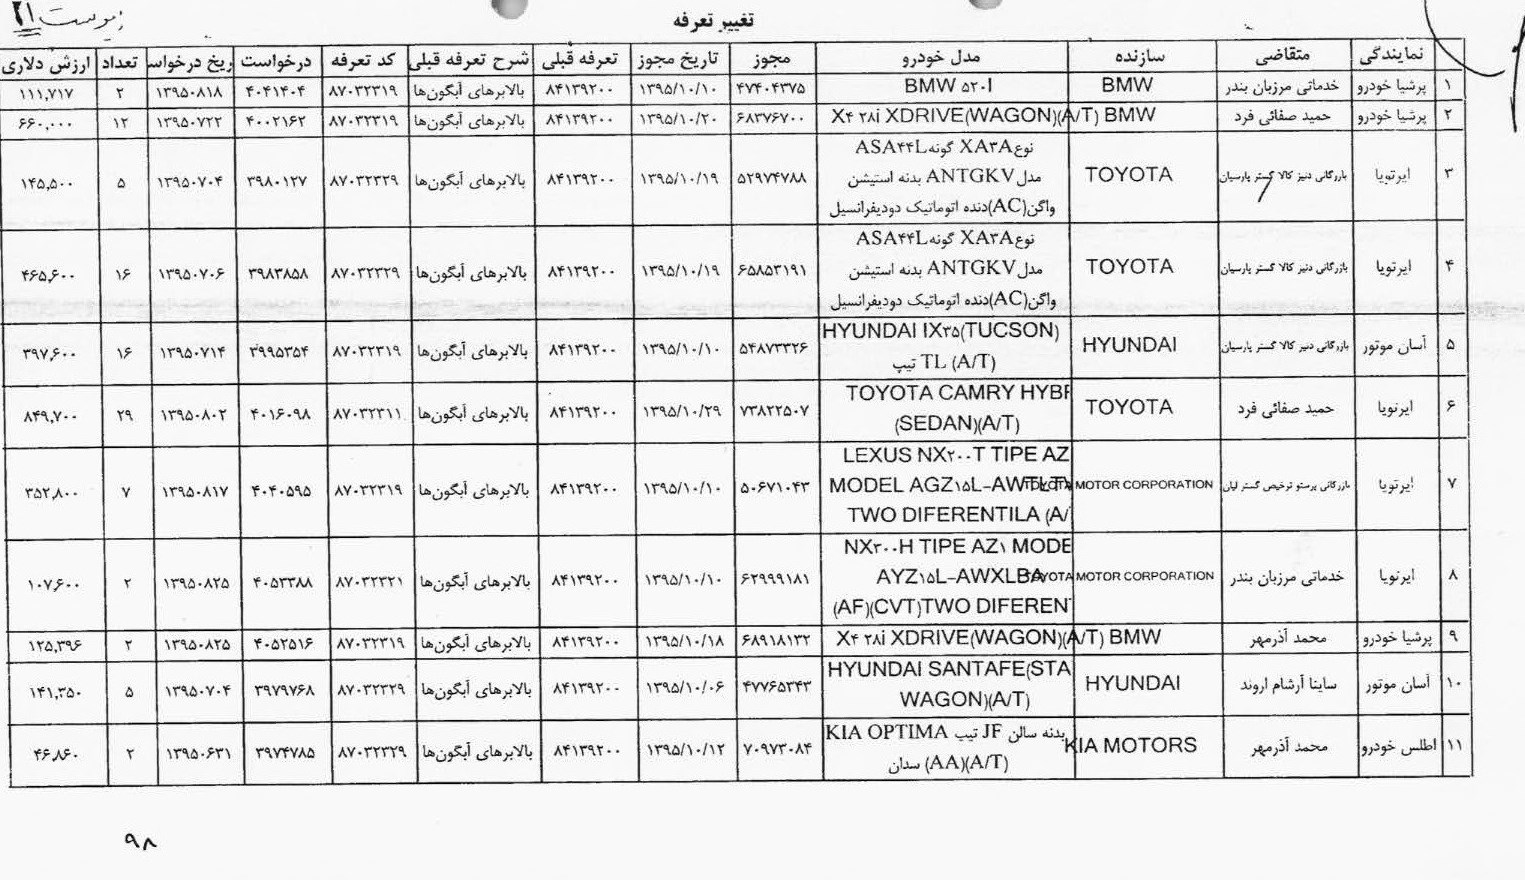 پیوست ۲۱
تغییر تعرفه
نمایندگی متقاضی سازنده مدل خودرو مجوز تاریخ مجوز تعرفه قبلی شرح تعرفه قبلی کد تعرفه درخواست ریخ درخواس تعداد ارزش دلاری
۱ پرشیا خودرو خدماتی مرزبان بندر BMW BMW ۵۲۰I ۴۷۴۰۴۳۷۵ ۱۳۹۵/۱۰/۱۰ ۸۴۱۳۹۲۰۰ بالابرهای آبگون‌ها ۸۷۰۳۲۳۱۹ ۴۰۴۱۴۰۴ ۱۳۹۵۰۸۱۸ ۲ ۱۱۱,۷۱۷
۲ پرشیا خودرو حمید صفائی فرد BMW X۴ ۲۸i XDRIVE(WAGON)(A/T) ۶۸۳۷۶۷۰۰ ۱۳۹۵/۱۰/۲۰ ۸۴۱۳۹۲۰۰ بالابرهای آبگون‌ها ۸۷۰۳۲۳۱۹ ۴۰۰۲۱۶۲ ۱۳۹۵۰۷۲۲ ۱۲ ۶۶۰,۰۰۰
نوع XA۳A گونه ASA۴۴L
۳ ایرتویا بازرگانی دنیز کالا گستر پارسیان TOYOTA مدل ANTGKV بدنه استیشن ۵۲۹۷۴۷۸۸ ۱۳۹۵/۱۰/۱۹ ۸۴۱۳۹۲۰۰ بالابرهای آبگون‌ها ۸۷۰۳۲۳۲۹ ۳۹۸۰۱۲۷ ۱۳۹۵۰۷۰۴ ۵ ۱۴۵,۵۰۰
واگن(AC)دنده اتوماتیک دودیفرانسیل
نوع XA۳A گونه ASA۴۴L
۴ ایرتویا بازرگانی دنیز کالا گستر پارسیان TOYOTA مدل ANTGKV بدنه استیشن ۶۵۸۵۳۱۹۱ ۱۳۹۵/۱۰/۱۹ ۸۴۱۳۹۲۰۰ بالابرهای آبگون‌ها ۸۷۰۳۲۳۲۹ ۳۹۸۳۸۵۸ ۱۳۹۵۰۷۰۶ ۱۶ ۴۶۵,۶۰۰
واگن(AC)دنده اتوماتیک دودیفرانسیل
HYUNDAI IX۳۵(TUCSON)
۵ آسان موتور بازرگانی دنیز کالا گستر پارسیان HYUNDAI TL (A/T) تیپ ۵۴۸۷۳۳۲۶ ۱۳۹۵/۱۰/۱۰ ۸۴۱۳۹۲۰۰ بالابرهای آبگون‌ها ۸۷۰۳۲۳۱۹ ۳۹۹۵۳۵۴ ۱۳۹۵۰۷۱۴ ۱۶ ۳۹۷,۶۰۰
TOYOTA CAMRY HYBF
۶ ایرتویا حمید صفائی فرد TOYOTA (SEDAN)(A/T) ۷۳۸۲۲۵۰۷ ۱۳۹۵/۱۰/۲۹ ۸۴۱۳۹۲۰۰ بالابرهای آبگون‌ها ۸۷۰۳۲۳۱۱ ۴۰۱۶۰۹۸ ۱۳۹۵۰۸۰۲ ۲۹ ۸۴۹,۷۰۰
LEXUS NX۲۰۰T TIPE AZ
۷ ایرتویا بازرگانی پرستو ترخیص گستر لیان TOYOTA MOTOR CORPORATION MODEL AGZ۱۵L-AWTLT ۵۰۶۷۱۰۴۳ ۱۳۹۵/۱۰/۱۰ ۸۴۱۳۹۲۰۰ بالابرهای آبگون‌ها ۸۷۰۳۲۳۱۹ ۴۰۴۰۵۹۵ ۱۳۹۵۰۸۱۷ ۷ ۳۵۲,۸۰۰
TWO DIFERENTILA (A/
NX۳۰۰H TIPE AZ۱ MODE
۸ ایرتویا خدماتی مرزبان بندر TOYOTA MOTOR CORPORATION AYZ۱۵L-AWXLBA ۶۲۹۹۹۱۸۱ ۱۳۹۵/۱۰/۱۰ ۸۴۱۳۹۲۰۰ بالابرهای آبگون‌ها ۸۷۰۳۲۳۲۱ ۴۰۵۳۳۸۸ ۱۳۹۵۰۸۲۵ ۲ ۱۰۷,۶۰۰
(AF)(CVT)TWO DIFEREN
۹ پرشیا خودرو محمد آذرمهر BMW X۴ ۲۸i XDRIVE(WAGON)(A/T) ۶۸۹۱۸۱۳۲ ۱۳۹۵/۱۰/۱۸ ۸۴۱۳۹۲۰۰ بالابرهای آبگون‌ها ۸۷۰۳۲۳۱۹ ۴۰۵۲۵۱۶ ۱۳۹۵۰۸۲۵ ۲ ۱۲۵,۳۹۶
HYUNDAI SANTAFE(STA
۱۰ آسان موتور ساینا آرشام اروند HYUNDAI WAGON)(A/T) ۴۷۷۶۵۳۴۳ ۱۳۹۵/۱۰/۰۶ ۸۴۱۳۹۲۰۰ بالابرهای آبگون‌ها ۸۷۰۳۲۳۲۹ ۳۹۷۹۷۶۸ ۱۳۹۵۰۷۰۴ ۵ ۱۴۱,۳۵۰
بدنه سالن JF تیپ KIA OPTIMA
۱۱ اطلس خودرو محمد آذرمهر KIA MOTORS (AA)(A/T) سدان ۷۰۹۷۳۰۸۴ ۱۳۹۵/۱۰/۱۲ ۸۴۱۳۹۲۰۰ بالابرهای آبگون‌ها ۸۷۰۳۲۳۲۹ ۳۹۷۴۷۸۵ ۱۳۹۵۰۶۳۱ ۲ ۴۶,۸۶۰
۹۸